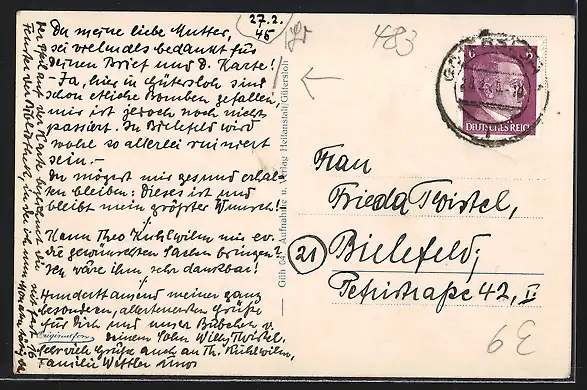 27.2.
45
Du meine liebe Mutter,
sei vielmals bedankt für
Deinen Brief und D. Karte!
- Ja, hier in Gütersloh sind
schon etliche Bomben gefallen,
mir ist jedoch noch nichts
passiert. In Bielefeld wird
wohl so allerlei ruiniert
sein. -
Du mögest mir gesund erhal-
ten bleiben: Dieses ist und
bleibt mein größter Wunsch!
Kann Theo Kuhlwilm mir ev.
die gewünschten Sachen bringen?
Ich wäre ihm sehr dankbar!
Hunderttausend meiner ganz
besonderen, allerbesten Grüße
für Dich und unser Bübchen v.
Deinem Sohn Willy Twistel.
Sehr viele Grüße auch an Th. Kuhlwilm,
Familie Wittler
Der Pfeil auf der Karte
Fenster der Bibliothek, in der ich nun
Originalfoto
Güh 04 Aufnahme u. Verlag Heilanstalt Gütersloh
483
6
DEUTSCHES REICH
Frau
Frieda Twistel,
21
Bielefeld,
Petristraße 42, II
9E